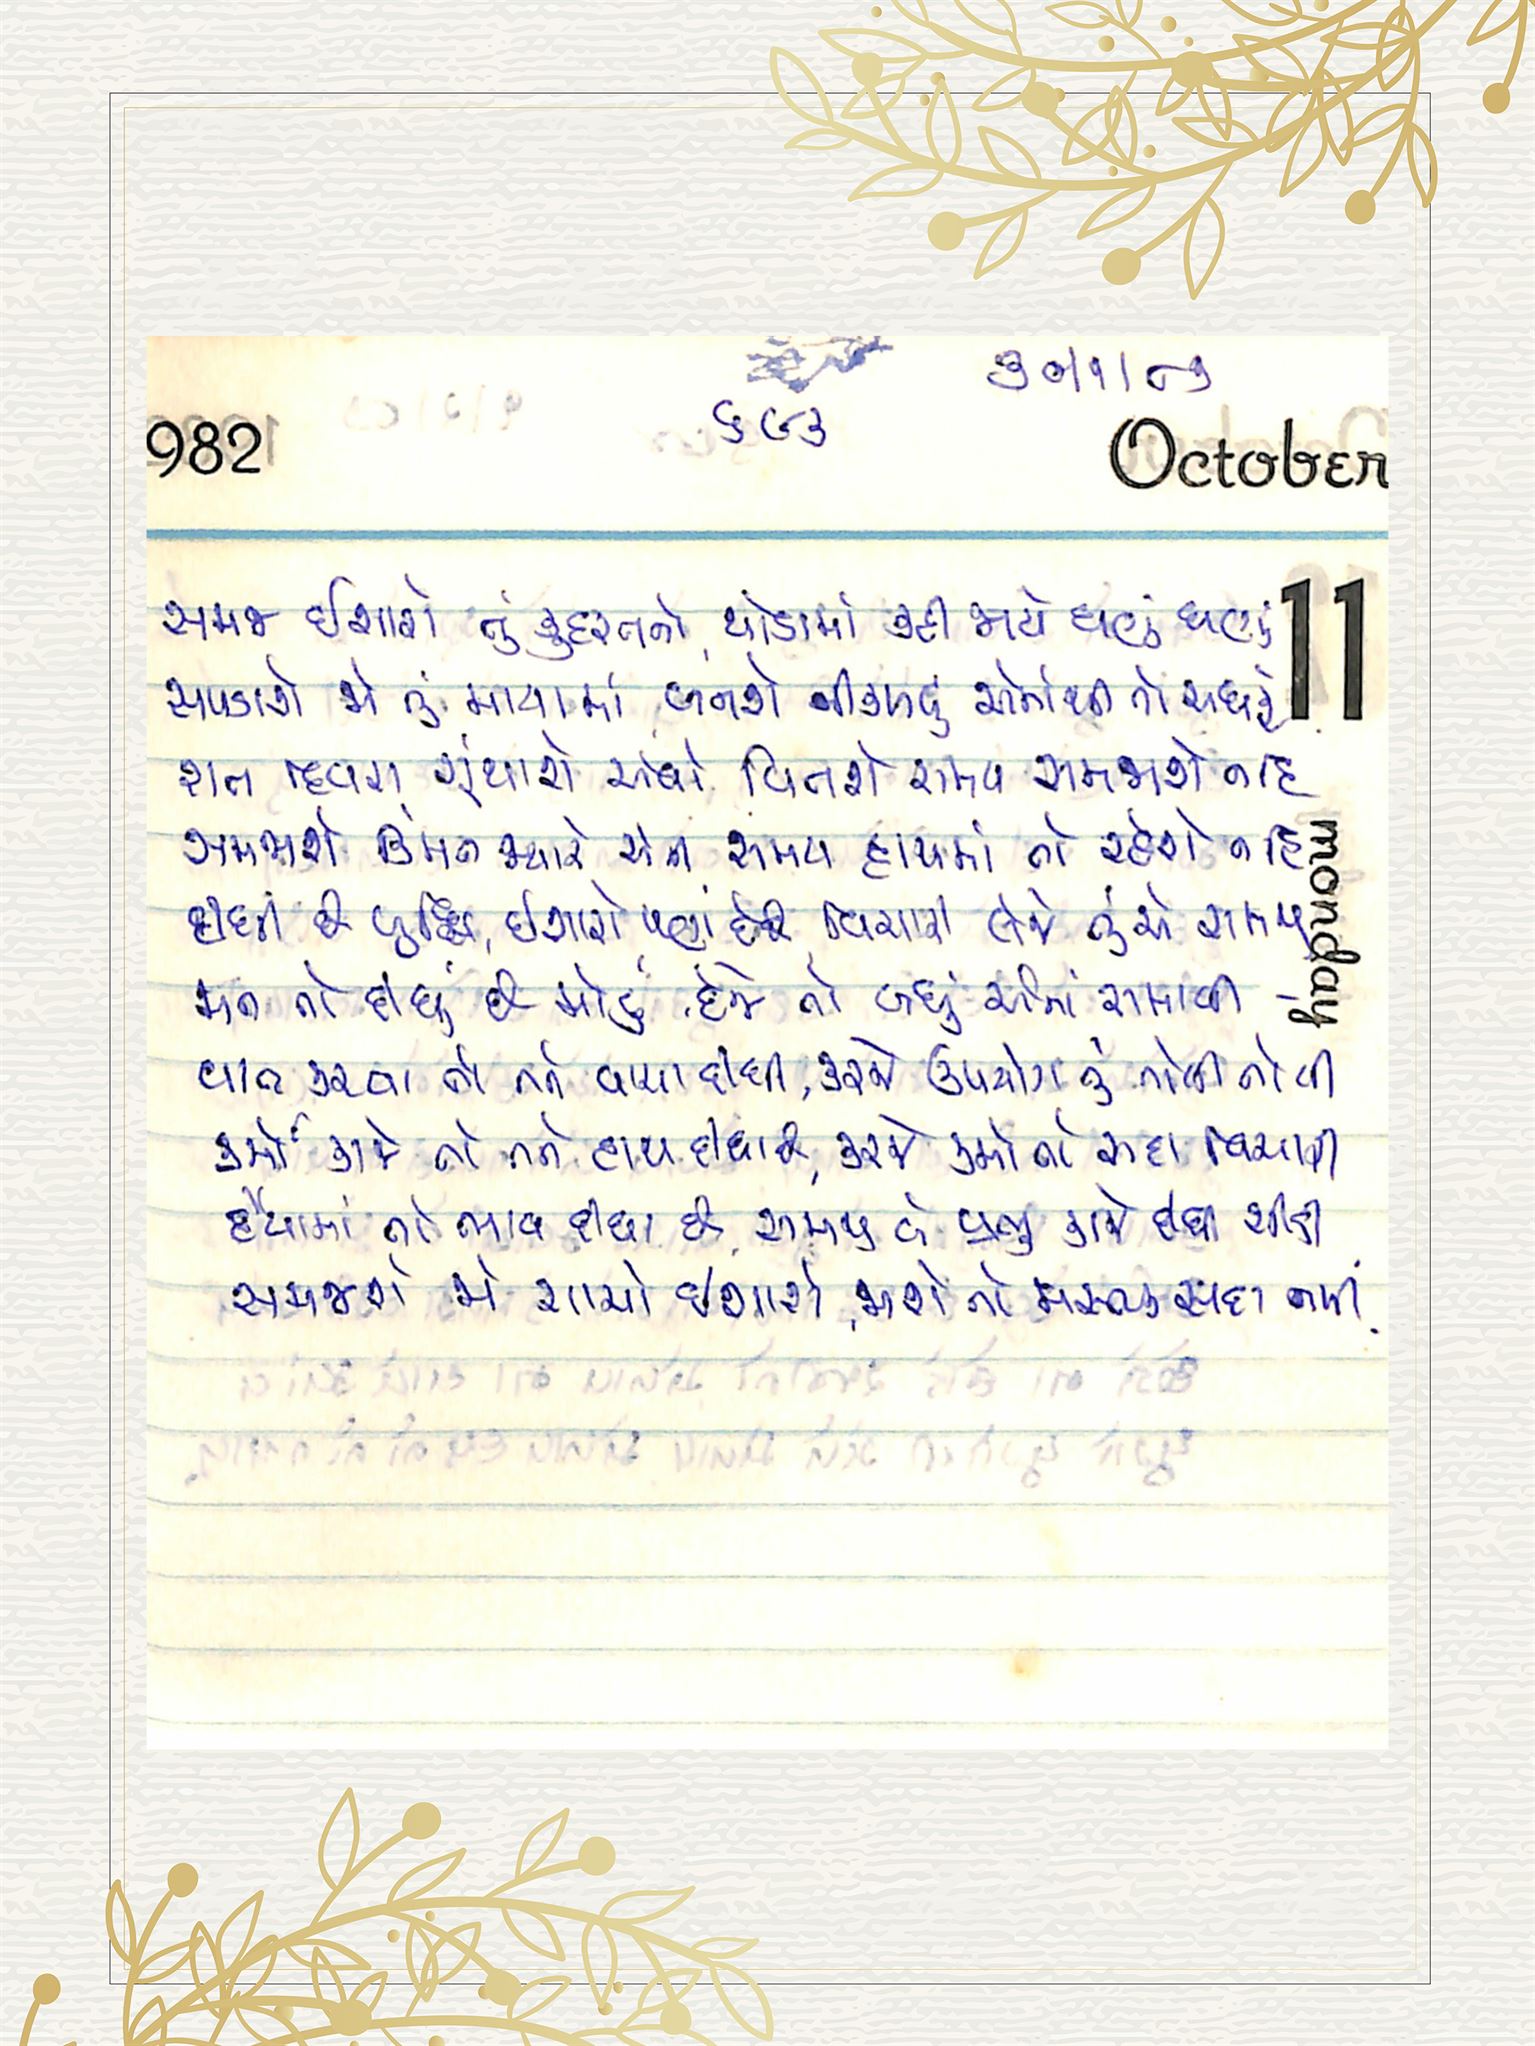 ૩૦/૧/૮૩
૬૯૩
982 October
11
monday
સમજ ઈશારો તું કુદરતનો, થોડામાં કહી જાયે ઘણું ઘણું
સપડાશે જો તું માયામાં બનશે નીકળવું એમાંથી તો અઘરું
રાત દિવસ ગૂંથાશે એવો વિતશે સમય સમજાશે નહિ
સમજાશે કિંમત જ્યારે એની સમય હાથમાં તો રહેશે નહિ
દીધી છે બુદ્ધિ, ઈશારો પણ દેશે, વિચારી લેજે તું એ સમય
મન તો દીધું છે મોટું દેજે તો બધું એમાં સમાવી
વાત કરવા તો તને વાચા દીધી, કરજે ઉપયોગ તું તોલી તોલી
કર્મો કાજે તો તને હાથ દીધા છે, કરજે કર્મો તો સદા વિચારી
હૈયામાં તો ભાવ દીધા છે, પ્રભુ કાજે દીધા
સમજશે જો સાચો ઈશારો, જાશે તો સદા બની.